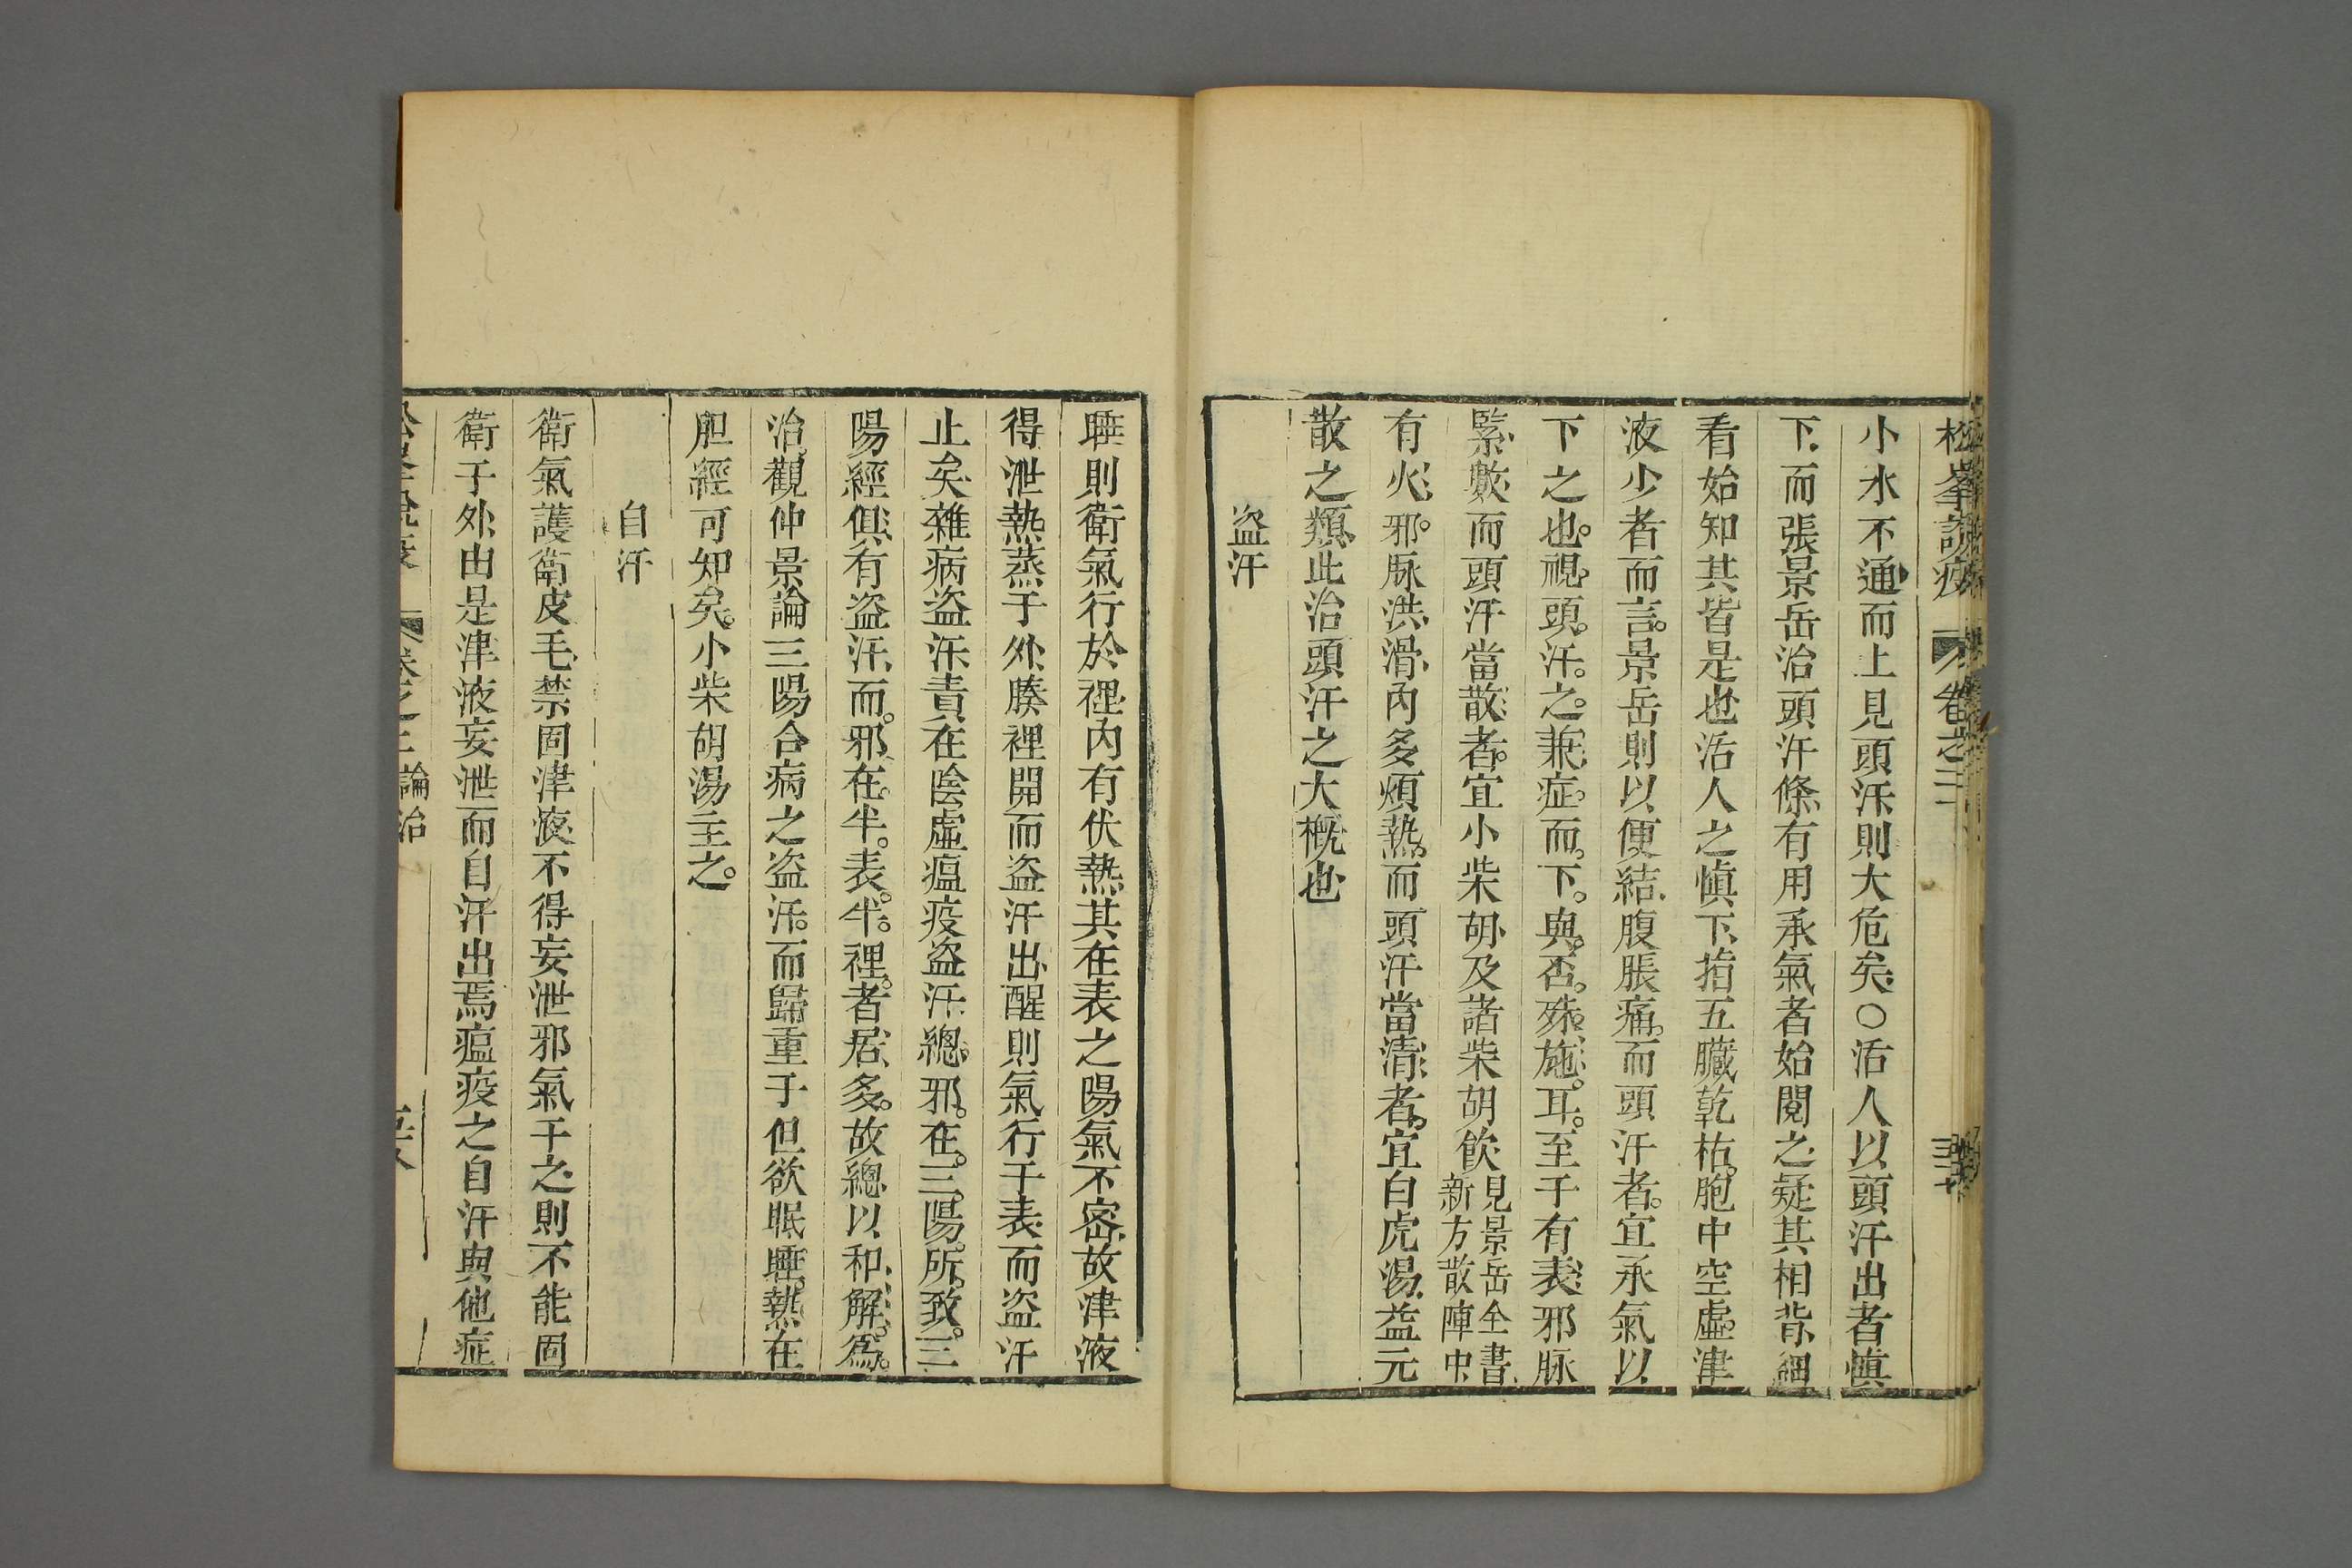 松峯說疫 卷之三
小水不通而上見頭汗則大危矣○活人以頭汗出者慎
下而張景岳治頭汗條有用承氣者始閱之疑其相背細
看始知其皆是也活人之慎下指五臟乾枯胞中空虛津
液少者而言景岳則以便結腹脹痛而頭汗者宜承氣以
下之也視頭汗之兼症而下與否殊施耳至于有表邪脉
緊數而頭汗當散者宜小柴胡及諸柴胡飲見景岳全書新方散陣中
有火邪脉洪滑內多煩熱而頭汗當清者宜白虎湯益元
散之類此治頭汗之大概也
盜汗
睡則衛氣行於裡內有伏熱其在表之陽氣不密故津液
得泄熱蒸于外腠裡開而盜汗出醒則氣行于表而盜汗
止矣雜病盜汗責在陰虛瘟疫盜汗總邪在三陽所致三
陽經俱有盜汗而邪在半表半裡者居多故總以和解為
治觀仲景論三陽合病之盜汗而歸重于但欲眠睡熱在
胆經可知矣小柴胡湯主之
自汗
衛氣護衛皮毛禁固津液不得妄泄邪氣干之則不能固
衛于外由是津液妄泄而自汗出焉瘟疫之自汗與他症
卷之三 論治